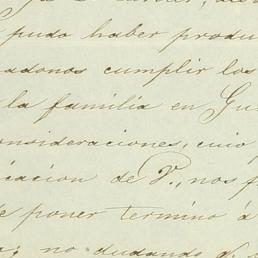 pudo haber produ
adonos cumplir los
la familia en Gu
onsideraciones, cuio
icacion de V., nos p
de poner termino á
no dudando